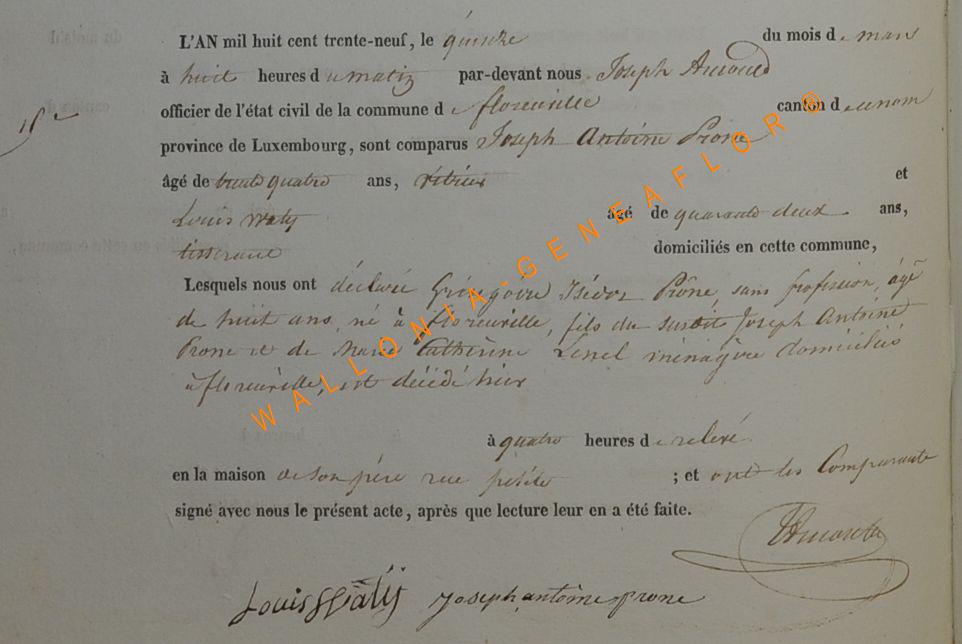 L'AN mil huit cent trente-neuf, le quinze du mois de mars
à huit heures du matin par-devant nous Joseph
officier de l'état civil de la commune de florenville canton de
15e
province de Luxembourg, sont comparus Joseph Antoine Prone
âgé de trente quatre ans, vitrier et
Louis Waty âgé de quarante deux ans,
tisserand domiciliés en cette commune,
Lesquels nous ont déclaré Grégoire Isidor Prône, sans profession, âgé
de huit ans, né à florenville, fils du susdit Joseph Antoine
Prone et de Marie Catherine ménagère domiciliés
à florenville, est décédé hier
à quatre heures de relevé
en la maison de son père rue petite ; et ont les Comparants
signé avec nous le présent acte, après que lecture leur en a été faite.
Louis Watÿ Joseph antoine prone
WALLONIA-GENEAFLOR®